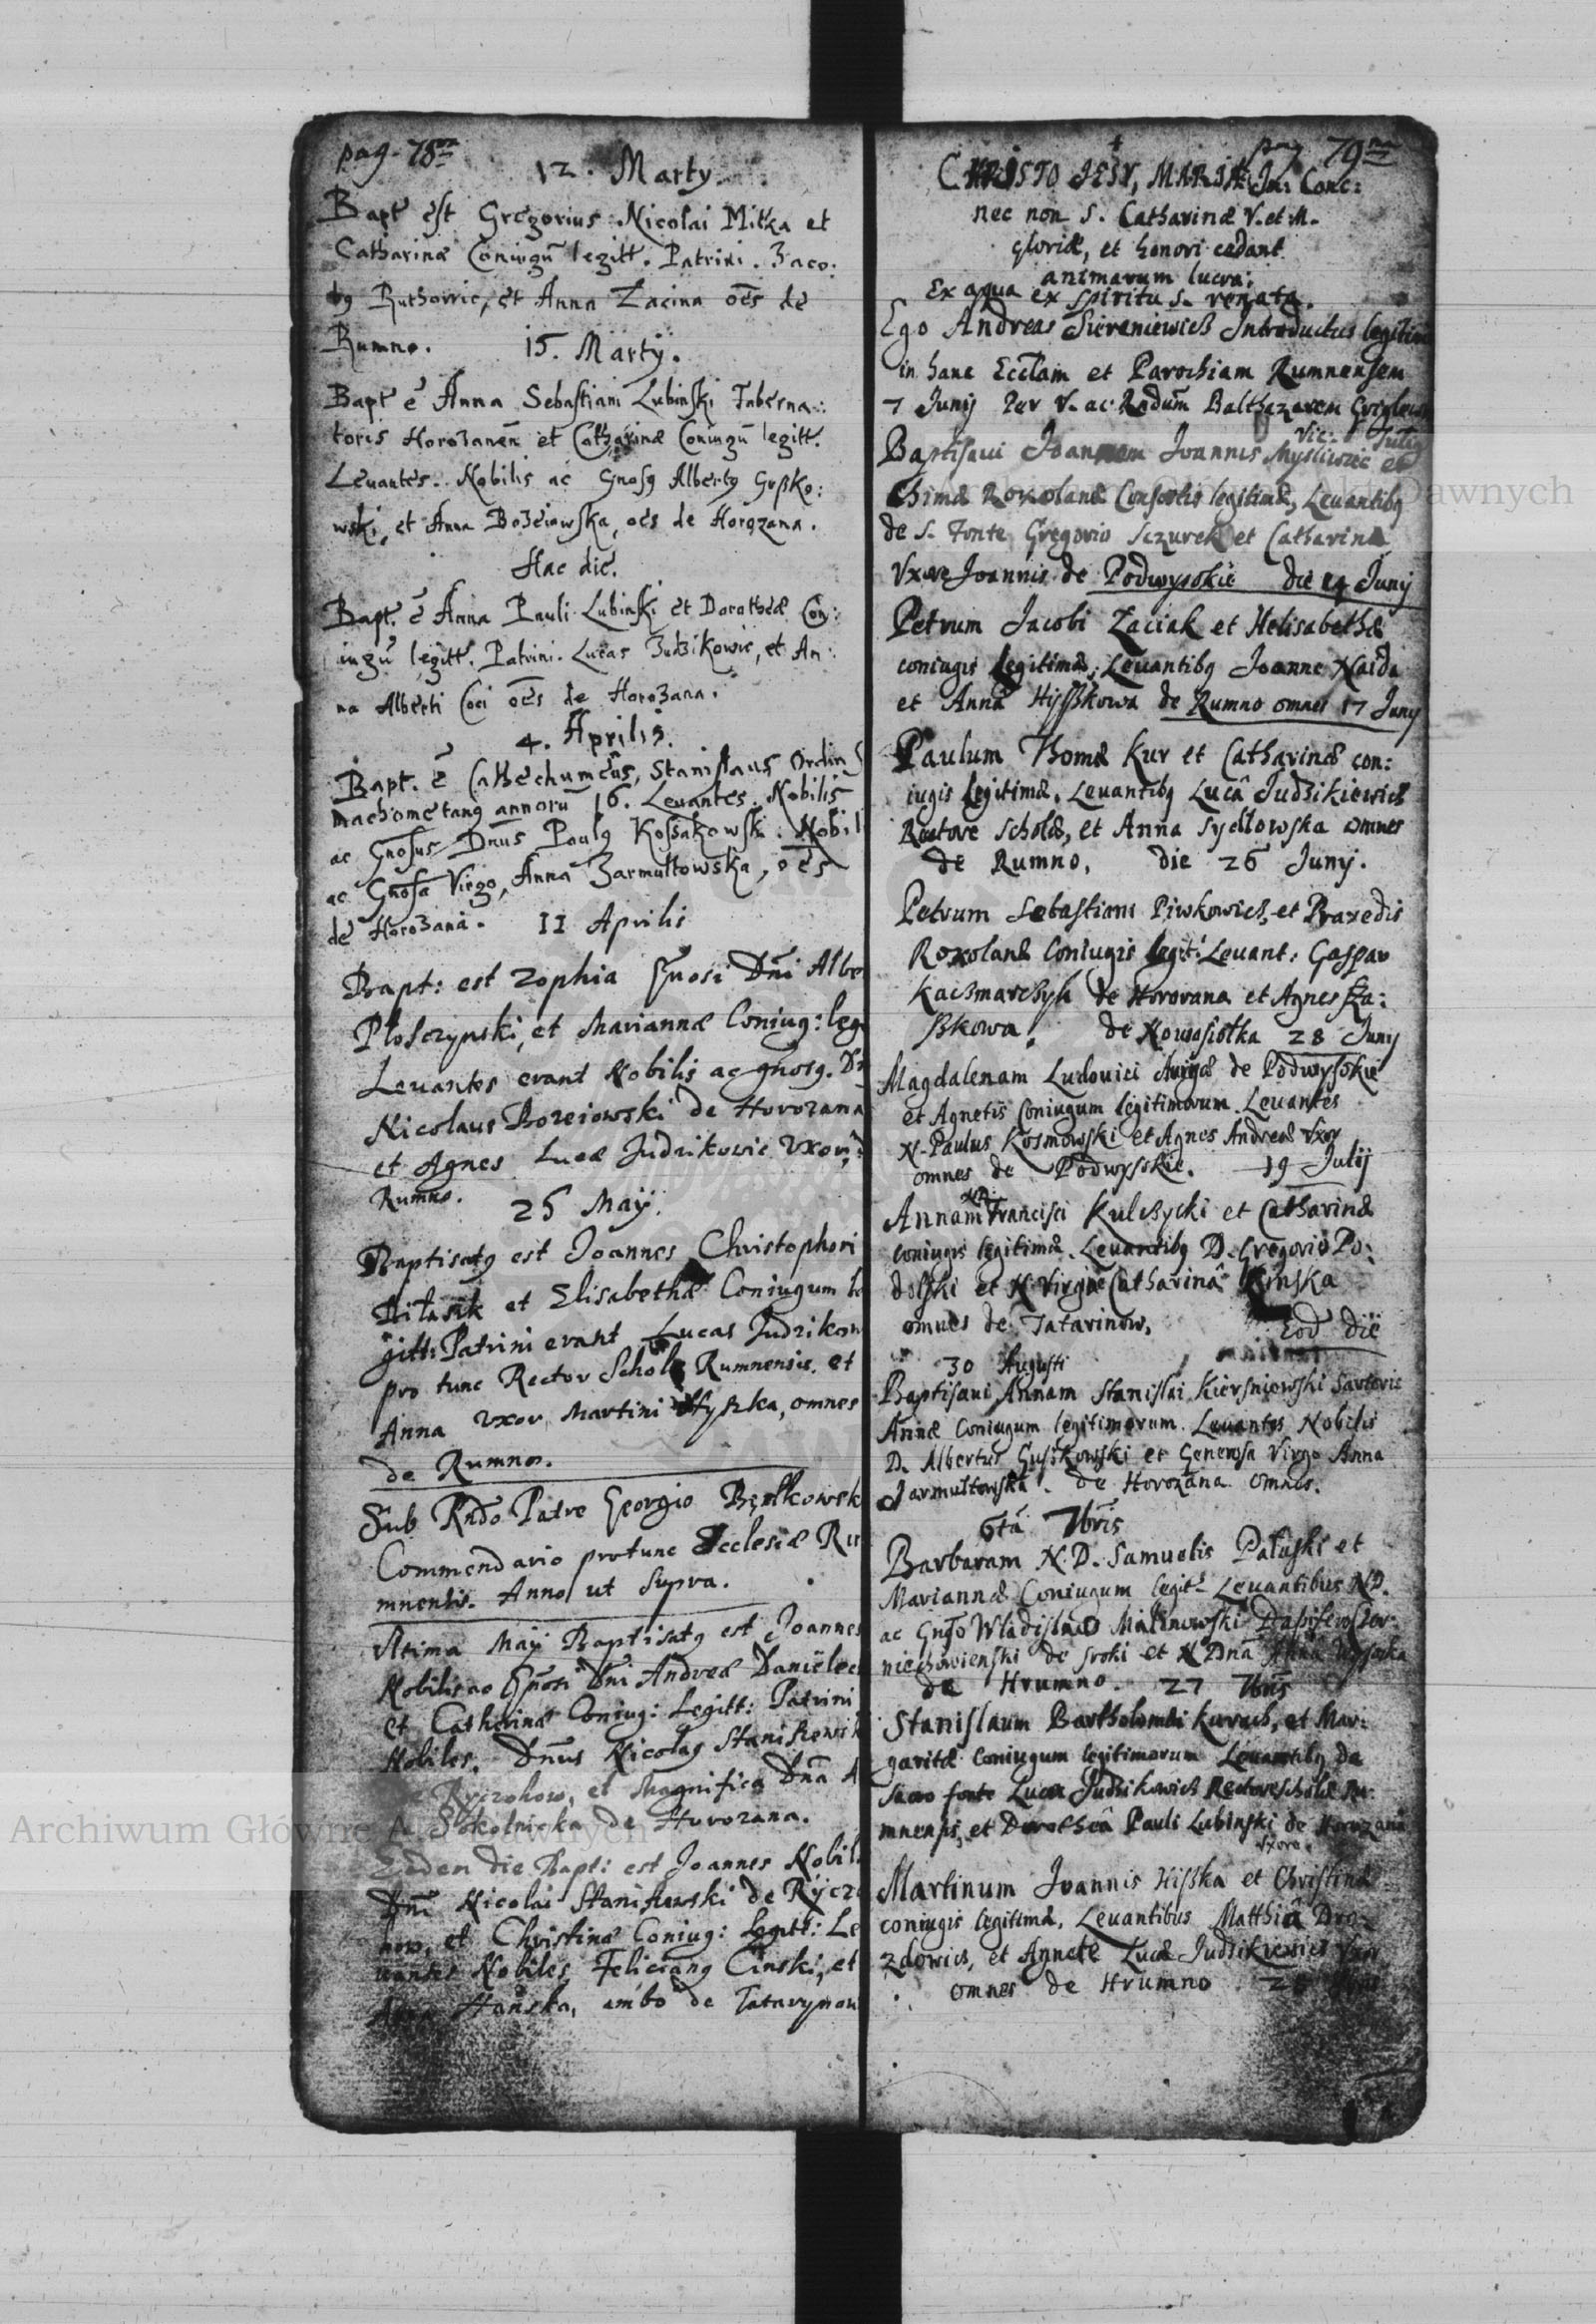 pag. 78
12. Marty
Bapt est Gregorius Nicolai Mitka et
Catharinæ Coniugũ legitt. Patrini. Jaco:
bq Ruthowic, et Anna Zacina oẽs de
Rumno.
15. Martÿ.
Bapt ẽ Anna Sebastiani Lubinski Taberna:
toris Horozaneñ et Catharinæ Coniugũ legitt.
Leuantes. Nobilis ac Gnosq Albertq Gusko:
wski, et Anna Bozeiowska, oẽs de Horozana.
Hac die.
Bapt. ẽ Anna Pauli Lubinski et Dorotheæ Con:
iugũ legitt. Patrini. Lucas Judzikowic, et An:
na Alberti Coci oẽs de Horozana.
4. Aprilis.
Bapt. ẽ Cathechumẽus, Stanislaus Ordin
machometanq annorũ 16. Leuantes. Nobilis
ac Gnosus Dnus Paulq Kossakowski. Nobil
ac Gnosa Virgo, Anna Jarmultowska, oẽs
de Horozana.
11 Aprilis
Bapt: est Zophia Gnosi Dni Albe
Ploszczynski, et Mariannæ Coniug: leg
Leuantes erant Nobilis ac gnosq. Dn
Nicolaus Bozeiowski de Horozana
et Agnes Lucæ Judzikowic Vxor,
Rumno.
25 Maÿ.
Baptisatq est Joannes Christophori
et Elisabethæ Coniugum le
gitt: Patrini erant Lucas Judzikow
pro tunc Rector Scholæ Rumnensis. et
Anna Vxor Martini Hyszka, omnes
de Rumno.
Sub Rndo Patre Georgio Bętkowsk
Commendario protunc Ecclesiæ Ru
mnensis. Anno ut supra.
Vltima Maÿ Baptisatq est Joannes
Nobilis ac Gnosi Dni Andreæ Danielec
et Catharinæ Coniug: Legitt: Patrini
Nobiles. Dnus Nicolaq Staniszewsk
Ryczchow, et Magnifica Dna A
Sokolnicka de Horozana.
Eadem die Bapt: est Joannes Nobil
Dni Nicolai Staniszewski de Rÿcz
how, et Christinæ Coniug: Legitt: Le
uantes Nobiles Felicianq Cinski, et
Hanska, ambo de Tatarynow
pag 79
CHRISTO JESV, MARIÆ Im: Conc:
nec non S. Catharinæ V. et M.
gloriæ, et honori cedant
animarum lucra;
Ex aqua ex spiritu S. renata.
Ego Andreas Sieraniewicz Introductus legitime
in hanc Ecclam et Parochiam Rumnensem
7 Junij Per V. ac Rndum Balthazarem
Baptisaui Joannem Joannis Mysliwiec et
chimæ Roxolanæ Consortis legitimæ, Leuantibq
de S. Fonte Gregorio Sczurek et Catharina
Vxore Joannis de Podwysokie die 14 Junij
Petrum Jacobi Zaciak et Helisabethæ
coniugis legitimæ; Leuantibq Joanne Naida
et Anna Hysszkowa de Rumno omnes 17 Junij
Paulum Thomæ Kur et Catharinæ con:
iugis legitimæ. Leuantibq Lucâ Judzikiewicz
Rectore scholæ, et Anna Syellowska omnes
de Rumno, die 26 Junij.
Petrum Sebastiani Piwkowicz, et Praxedis
Roxolanæ Coniugis legit: Leuant: Gaspar
Kaczmarczyk de Horozana et Agnes
szkowa. de Nowosiolka 28 Junij
Magdalenam Ludouici Aurigæ de Podwysokie
et Agnetis Coniugum legitimorum. Leuantes
N. Paulus Kosmowski et Agnes Andreæ Vxor
omnes de Podwysokie. 19 Julij
Annam Francisci Kulczycki et Catharinæ
coniugis legitimæ. Leuantibq D. Gregorio Po:
dolski et N. Virgine Catharinâ Kinska
omnes de Tatarinow, Eod die
30 Augusti
Baptisaui Annam Stanislai Kiersniowski Sartoris
Annæ Coniugum legitimorum. Leuantes Nobilis
D. Albertus Guszkowski et Generosa Virgo Anna
Jarmultowska. de Horozana omnes.
6tâ 7bris
Barbaram N. D. Samuelis Paluski et
Mariannæ Coniugum legit. Leuantibus N D.
ac Gnso Wladislao Malinowski
de Sroki et N Dna Anna Wysocka
de Hrumno. 27 7bris
Stanislaum Bartholomæi Kuracz, et Mar:
garitæ Coniugum legitimorum Leuantibq de
sacro fonte Luca Judzikowicz Rectore scholæ Ru:
mnensis, et Dorotheâ Pauli Lubinski de Horozana
Vxore.
Martinum Joannis Hiszka et Christinæ
coniugis legitimæ, Leuantibus Matthiâ Dro:
zdowicz, et Agnete Lucæ Judzikiewicz Vxor
omnes de Hrumno
Archiwum Główne Akt Dawnych
Archiwum Główne Akt Dawnych